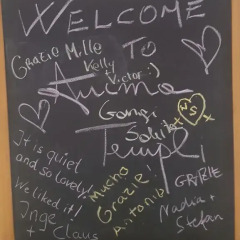 WELCOME
TO
GRAZIE Mille
Kelly +
Victor :)
Anima
Gangi
Saluti
Templ
NS
It is quiet
and so lovely!
We liked it!
Inge
+ Claus
Mucho
Grazie
Antonio
GRAZIE
Nadia +
Stefan